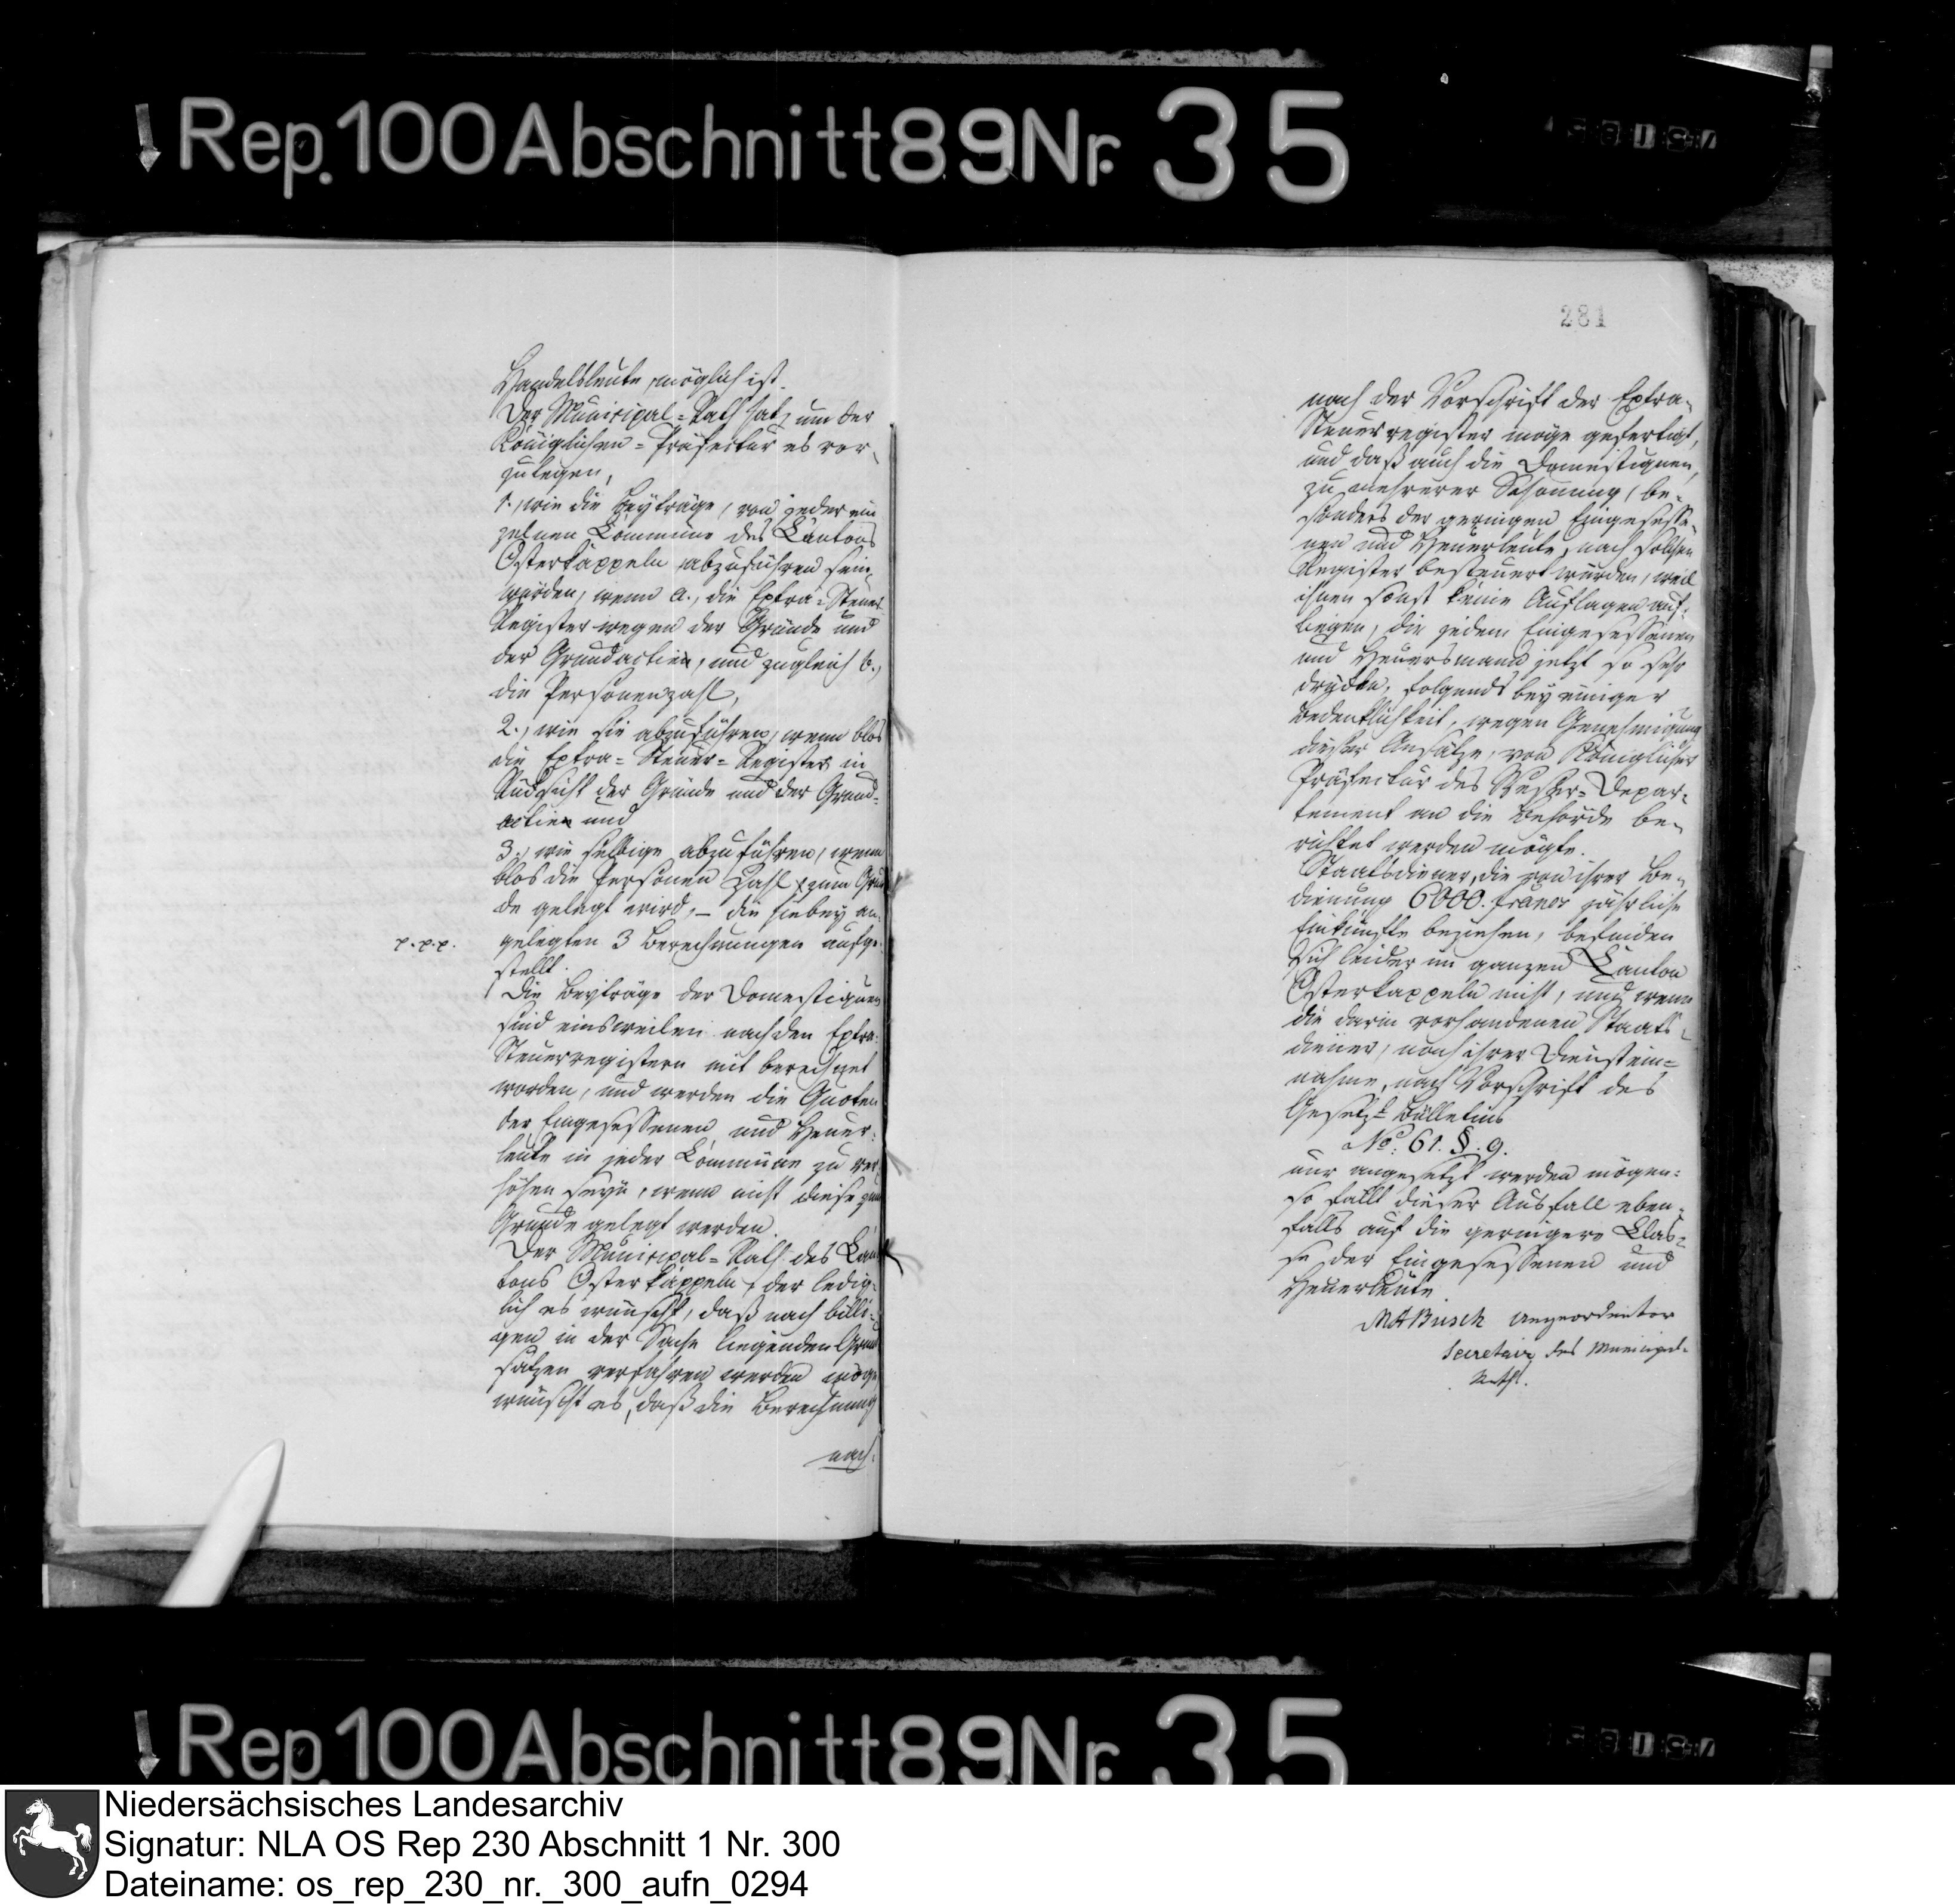 Rep. 100 Abschnitt 89 Nr. 35
Handelsleute, möglich ist.
Der Municipal=Rath hat, um der
Königlichen=Präfectur es vor-
zulegen,
1., wie die Beyträge, von jeder ein
zelnen Commüne des Cantons
Osterkappeln abzuführen sein
würden, wenn a., die Extra=Steuer
Register wegen der Gründe und
der Grundactien, und zugleich b.,
die Personenzahl,
2., wie sie abzuführen, wenn blos
die Extra=Steuer=Register in
Rücksicht der Gründe und der Grund=
actien und
3., wie selbige abzuführen, wenn
blos die Personen Zahl zum Grun
de gelegt wird, – die hiebey an-
p.p.p.
gelegten 3 Berechnungen aufge-
stellt.
Die Beyträge der Domestiquen
sind einsweilen nach den Extra-
Steuerregistern mit berechnet
worden, und werden die Quoten
der Eingesessenen und Heuer-
leute in jeder Commüne zu er
höhen seyn, wenn nicht diese zum
Grunde gelegt werden.
Der Municipal=Rath des Can
tons Osterkappeln, der ledig-
lich es wünscht, daß nach billi-
gen in der Sache liegenden Grund
sätzen verfahren werden möge
wünscht es, daß die Berechnung
nach
281
nach der Vorschrift der Extra-
Steuerregister möge gefertigt,
und daß auch die Domestiquen,
zu mehrerer Schonung, be-
sonders der geringen Eingesesse-
nen und Heuerleute, nach solchen
Register besteuert würden, weil
ihnen sonst keine Auflagen auf-
liegen, die jedem Eingesessenen
und Heuersmann jetzt so sehr
drücken, folgends bey einiger
Bedenklichkeit, wegen Genehmigung
dieser Ansätze, von Königlicher
Präfectur des Weser=Depar-
tement an die Behörde be-
richtet werden mögte.
Staatsdiener, die von ihrer Be-
dienung 6000. francs jährliche
Einkünfte beziehen, befinden
sich leider im ganzen Canton
Osterkappeln nicht, und wenn
die darin vorhandenen Staats-
diener, nach ihrer Dienstein=
nahme, nach Vorschrift des
Gesetz Bülletins
No: 61. §. 9.
nur angesetzt werden mögen:
so fällt dieser Ausfall eben-
falls auf die geringere Clas-
se der Eingesessenen und
Heuerleute
MABusch angeordneter
Secretair des Municipal-
Rath.
Rep. 100 Abschnitt 89 Nr. 35
Niedersächsisches Landesarchiv
Signatur: NLA OS Rep 230 Abschnitt 1 Nr. 300
Dateiname: os_rep_230_nr._300_aufn_0294